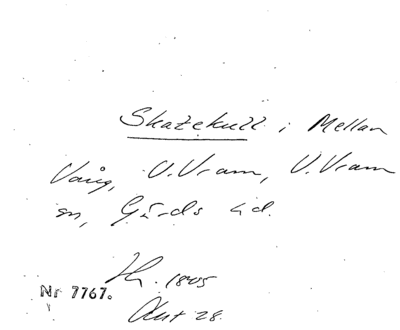 Skatekull i Mellan
Vång, V.Vram, V.Vram
sn, Gärds hd.
1805
Nr 7767.
Akt 28.